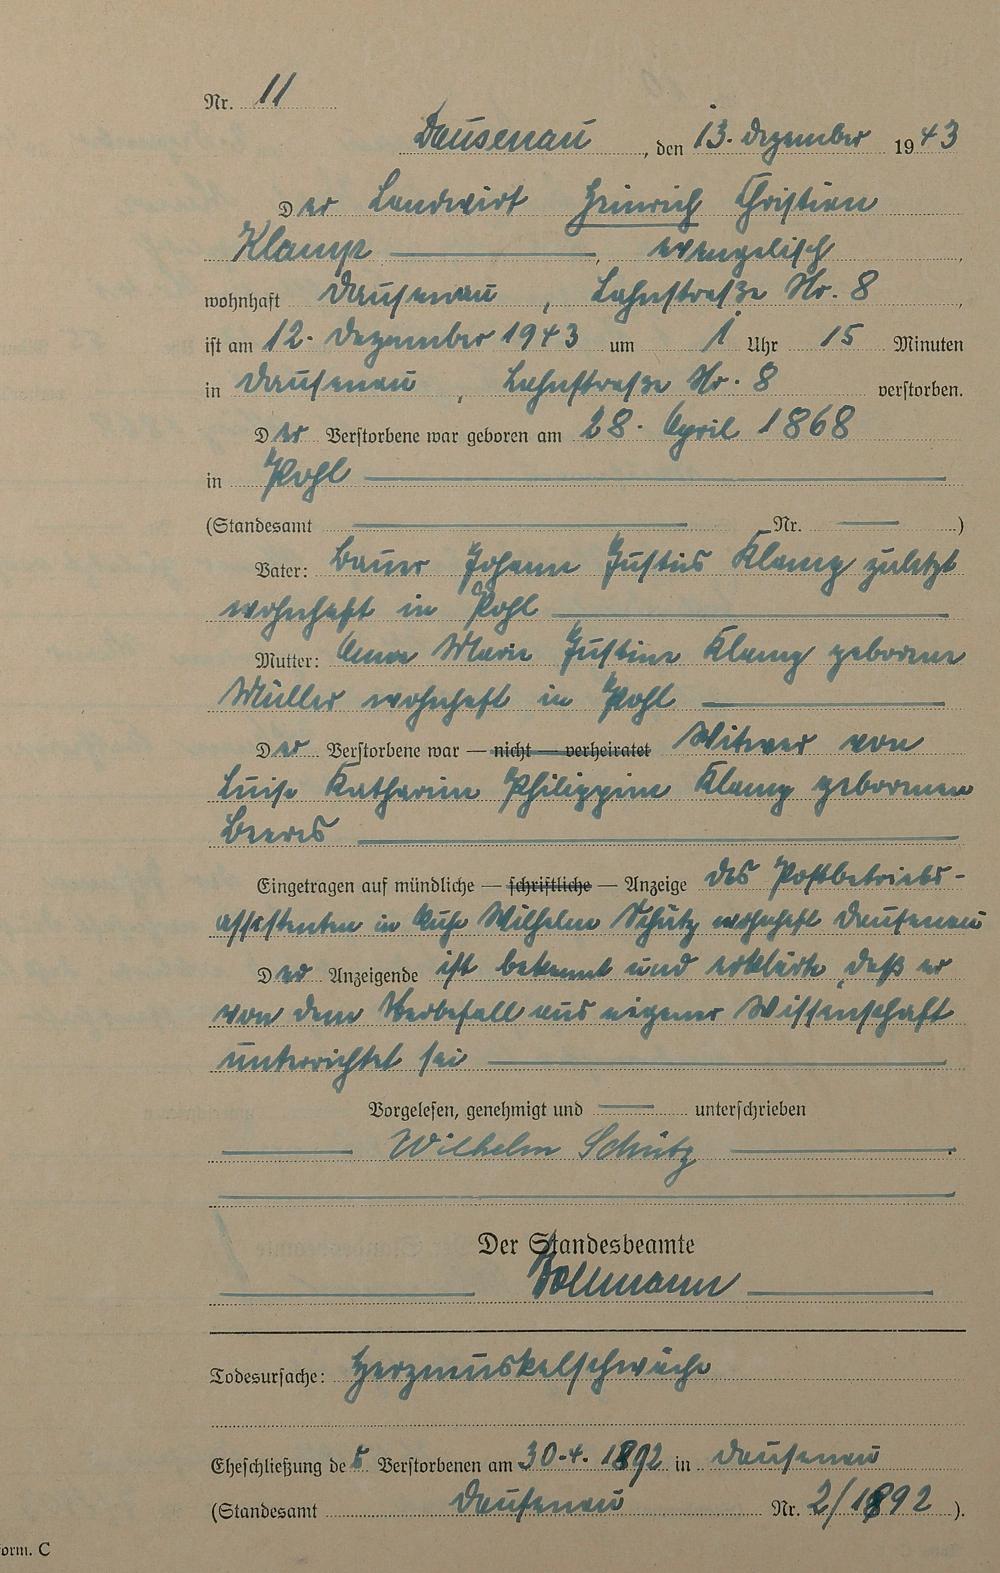 Nr. 11
Dausenau, den 13. Dezember 1943
Der Landwirt Heinrich Christian
Klamp, evangelisch,
wohnhaft Dausenau, Lahnstraße Nr. 8,
ist am 12. Dezember 1943 um 1 Uhr 15 Minuten
in Dausenau, Lahnstraße Nr. 8 verstorben.
Der Verstorbene war geboren am 28. April 1868
in Pohl
(Standesamt Nr. )
Vater: Bauer Johann Justus Klamp zuletzt
wohnhaft in Pohl
Mutter: Anna Marie Justine Klamp geborene
Müller wohnhaft in Pohl
Der Verstorbene war — nicht — verheiratet Witwer von
Luise Katharine Philippine Klamp geborenen
Beeres
Eingetragen auf mündliche — schriftliche — Anzeige des Postbetriebs-
assistenten in Ruhe Wilhelm Schütz wohnhaft Dausenau
Der Anzeigende ist bekannt und erklärte, daß er
von dem Sterbefall aus eigener Wissenschaft
unterrichtet sei
Vorgelesen, genehmigt und unterschrieben
Wilhelm Schütz
Der Standesbeamte
Todesursache: Herzmuskelschwäche
Eheschließung des Verstorbenen am 30.4.1892 in Dausenau
(Standesamt Dausenau Nr. 2/1892).
orm. C